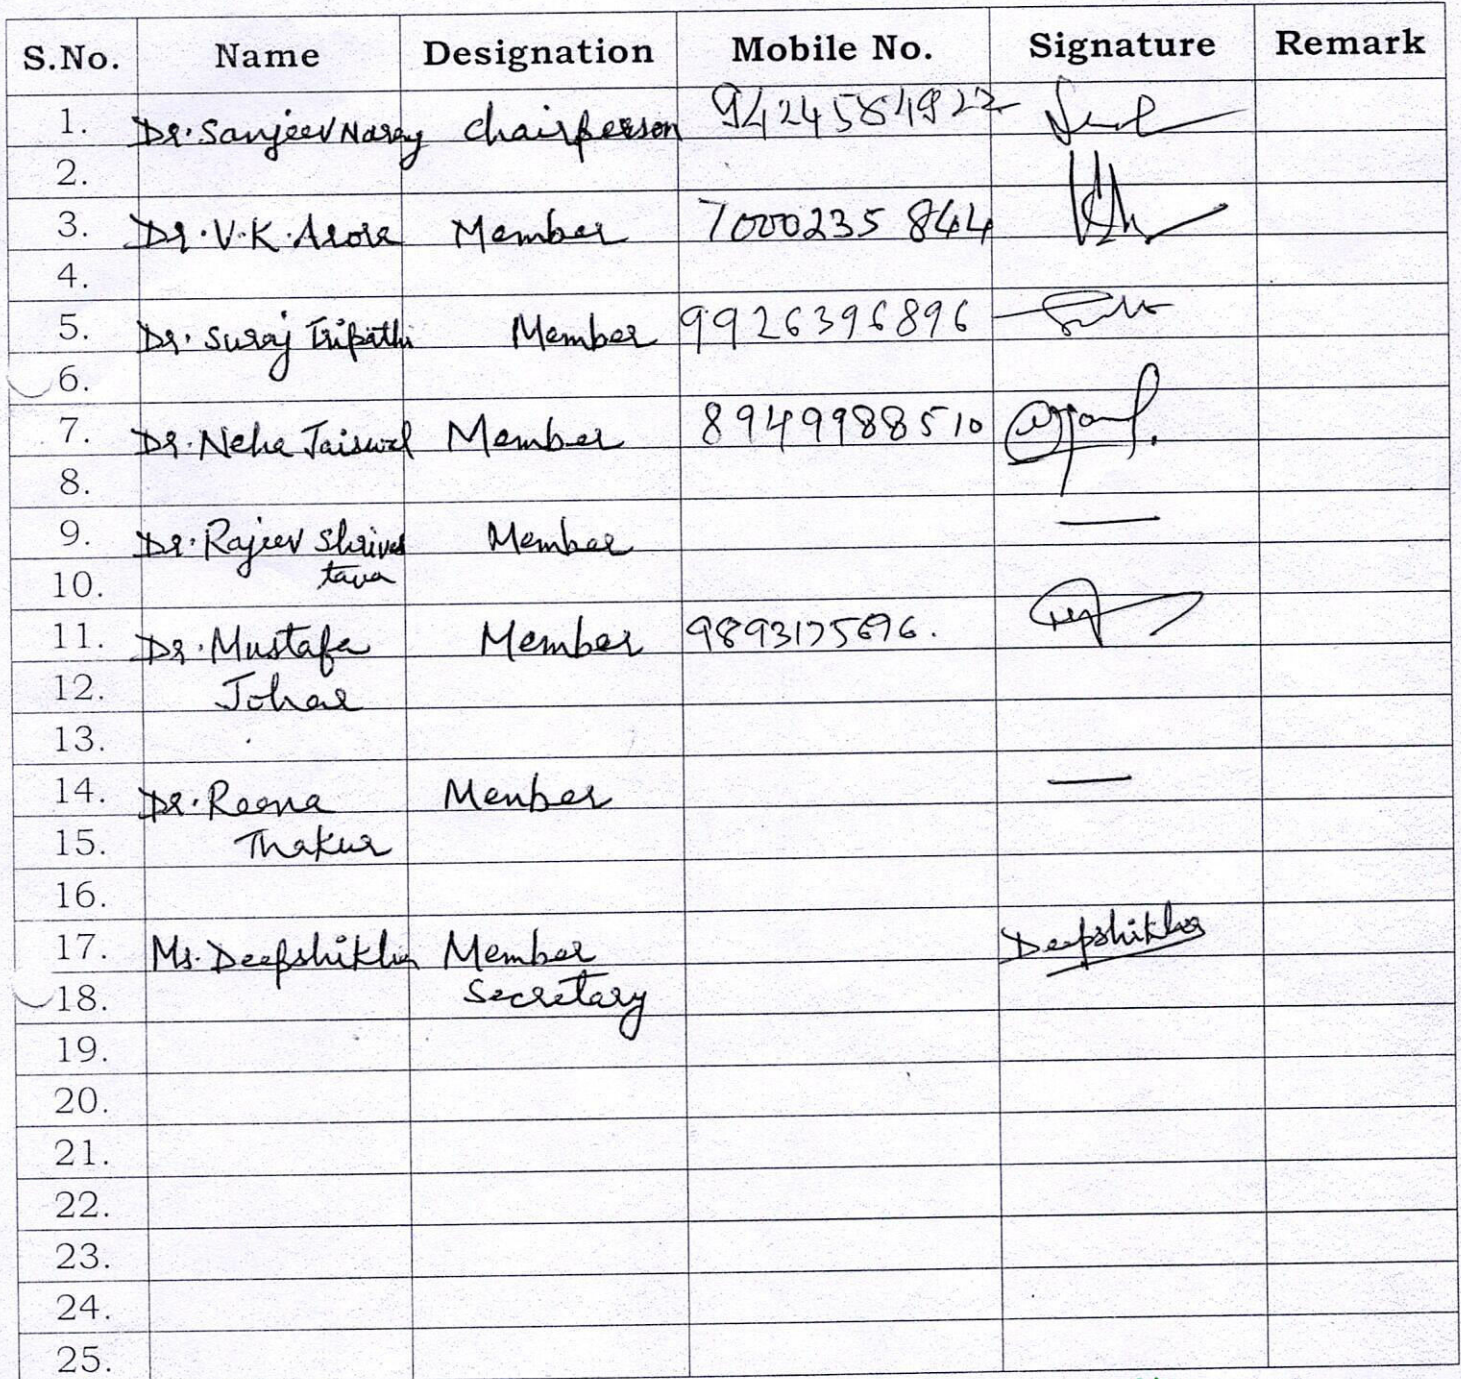 S.No. Name Designation Mobile No. Signature Remark
1. Dr. Sanjeev Narang Chairperson 9424584922
2.
3. Dr. V.K. Arora Member 7000235844
4.
5. Dr. Suraj Tripathi Member 9926396896
6.
7. Dr. Neha Jaiswal Member 8949988510
8.
9. Dr. Rajeev Shrivas Member —
10. tava
11. Dr. Mustafa Member 9893175696.
12. Johar
13.
14. Dr. Reena Member —
15. Thakur
16.
17. Ms. Deepshikha Member Deepshikha
18. Secretary
19.
20.
21.
22.
23.
24.
25.